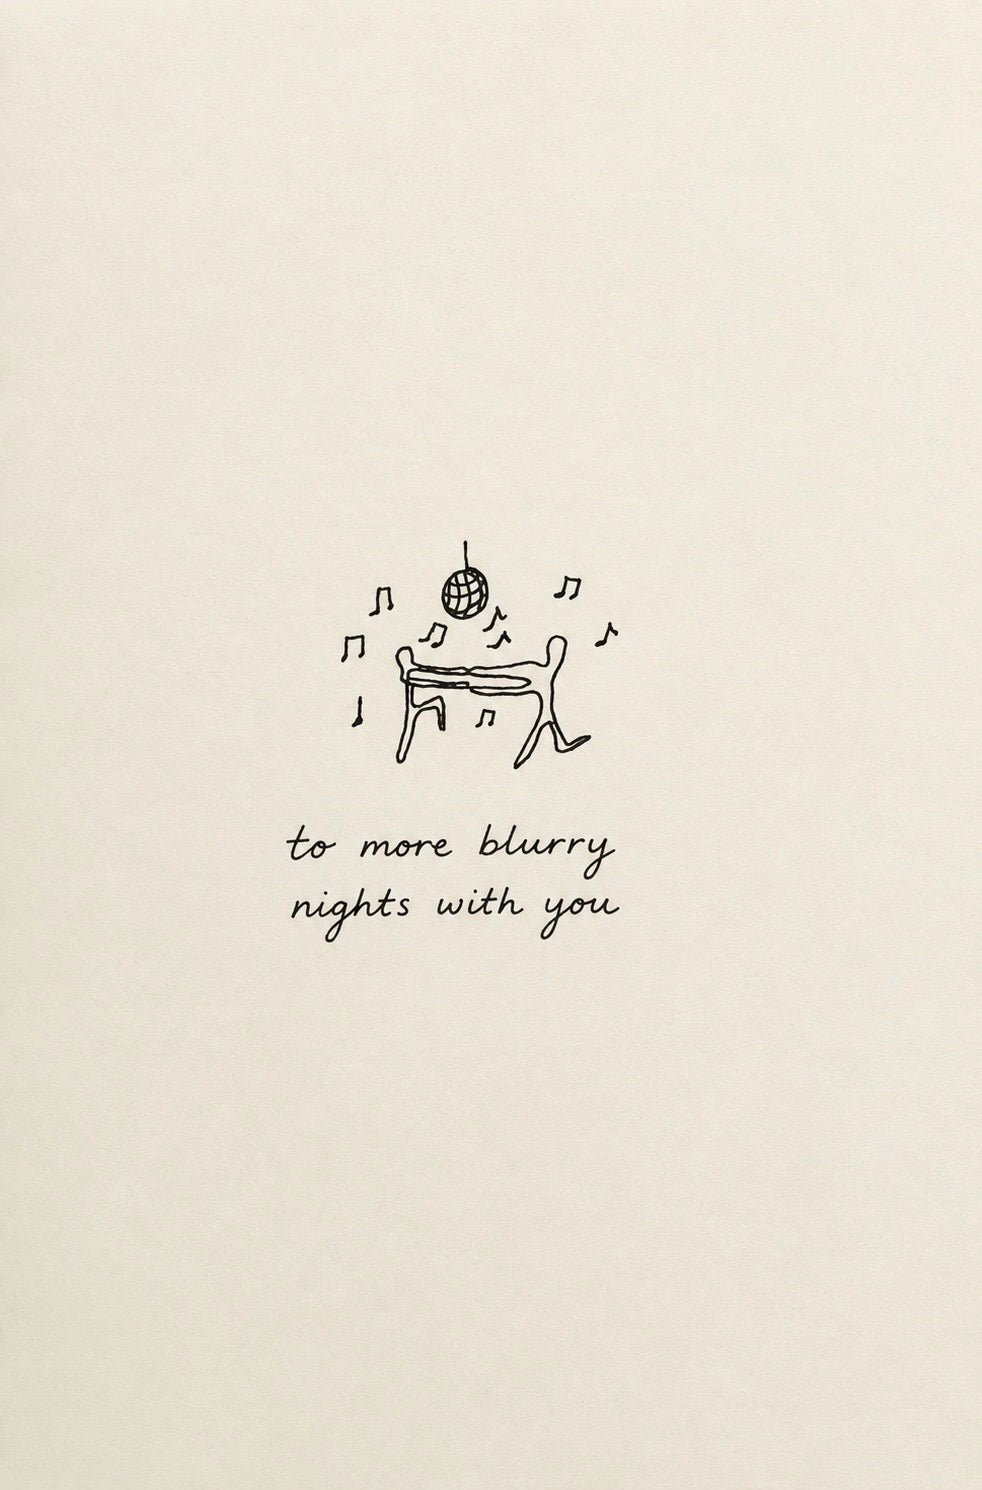 to more blurry
nights with you